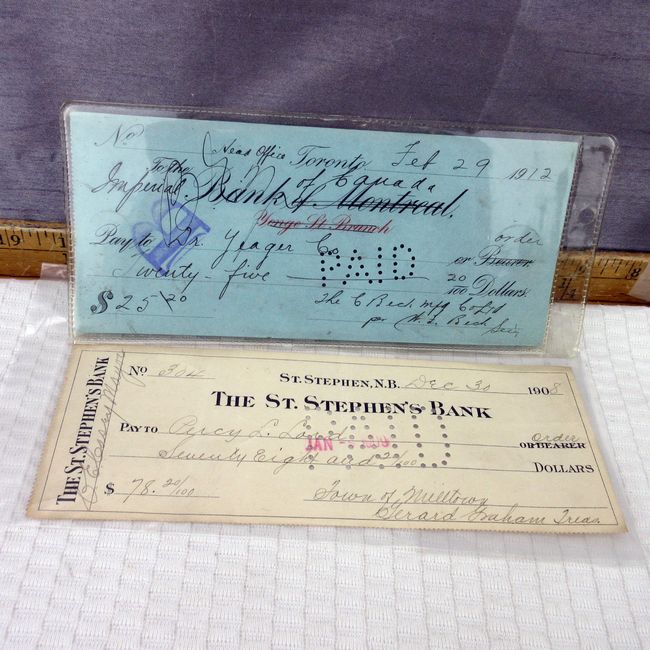 No. Head Office Toronto Feb 29 1912
To The
Imperial Bank of Montreal. of Canada
Yonge St. Branch
Pay to Dr. Yeager Co order
or Bearer
PAID
Twenty-five 20/100 Dollars.
$25 20
The C Beck mfg Co Ltd
per W. F. Beck Sec.
THE ST. STEPHEN'S BANK
No 304
ST. STEPHEN, N.B. Dec 30 1908
THE ST. STEPHEN'S BANK
PAY TO Percy L. Lord order
OR BEARER
PAID
JAN
Seventy Eight and 20/100 DOLLARS
$ 78. 20/100
Town of Milltown
Gerard Graham Treas
19